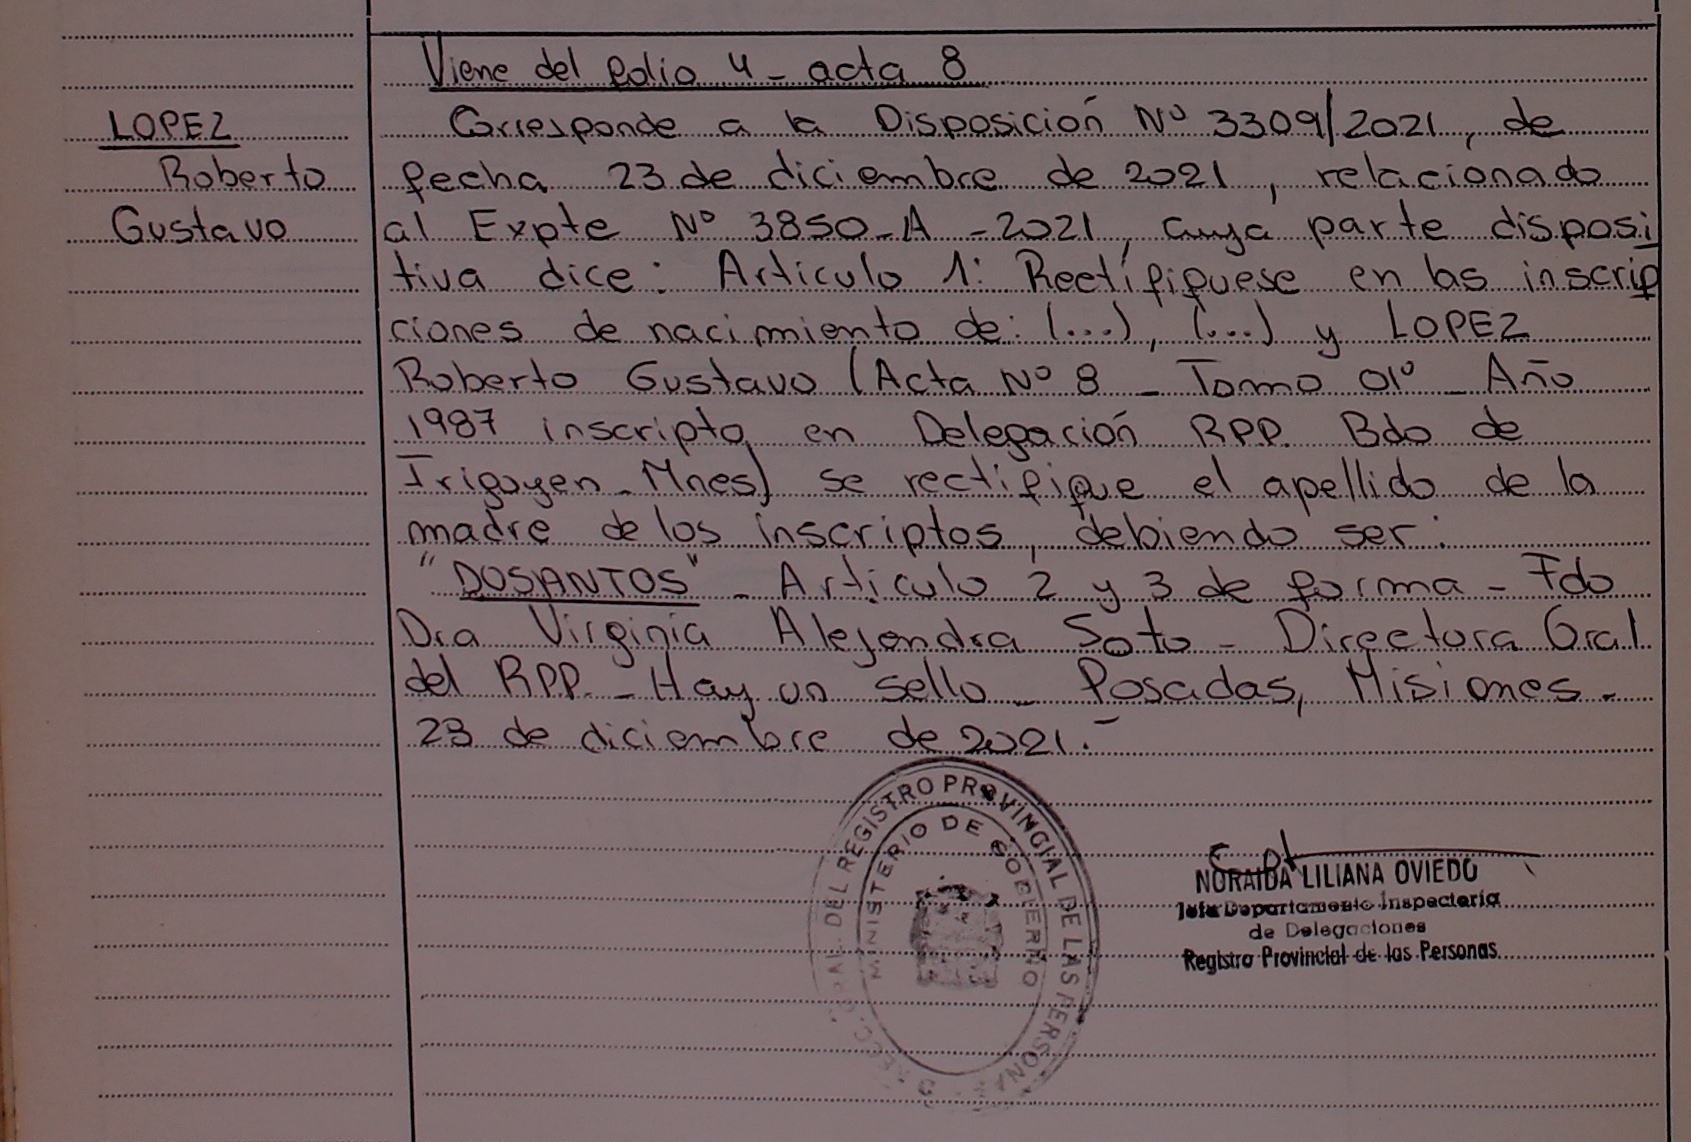 Viene del folio 4 - acta 8
LOPEZ
Roberto
Gustavo
Corresponde a la Disposición Nº 3309/2021, de
fecha 23 de diciembre de 2021, relacionado
al Expte Nº 3850-A-2021, cuya parte disposi
tiva dice: Articulo 1: Rectifíquese en las inscrip
ciones de nacimiento de: (...), (...) y LOPEZ
Roberto Gustavo (Acta Nº 8 - Tomo 01º - Año
1987 inscripto en Delegación RPP. Bdo de
Irigoyen - Mnes) se rectifique el apellido de la
madre de los inscriptos, debiendo ser:
"DOSANTOS" - Articulo 2 y 3 de forma - Fdo
Dra Virginia Alejandra Soto - Directora Gral
del RPP. - Hay un sello - Posadas, Misiones -
23 de diciembre de 2021.-
DEL REGISTRO PROVINCIAL DE LAS PERSONAS
MINISTERIO DE GOBIERNO
NORAIDA LILIANA OVIEDO
Jefa Departamento Inspectoria
de Delegaciones
Registro Provincial de las Personas